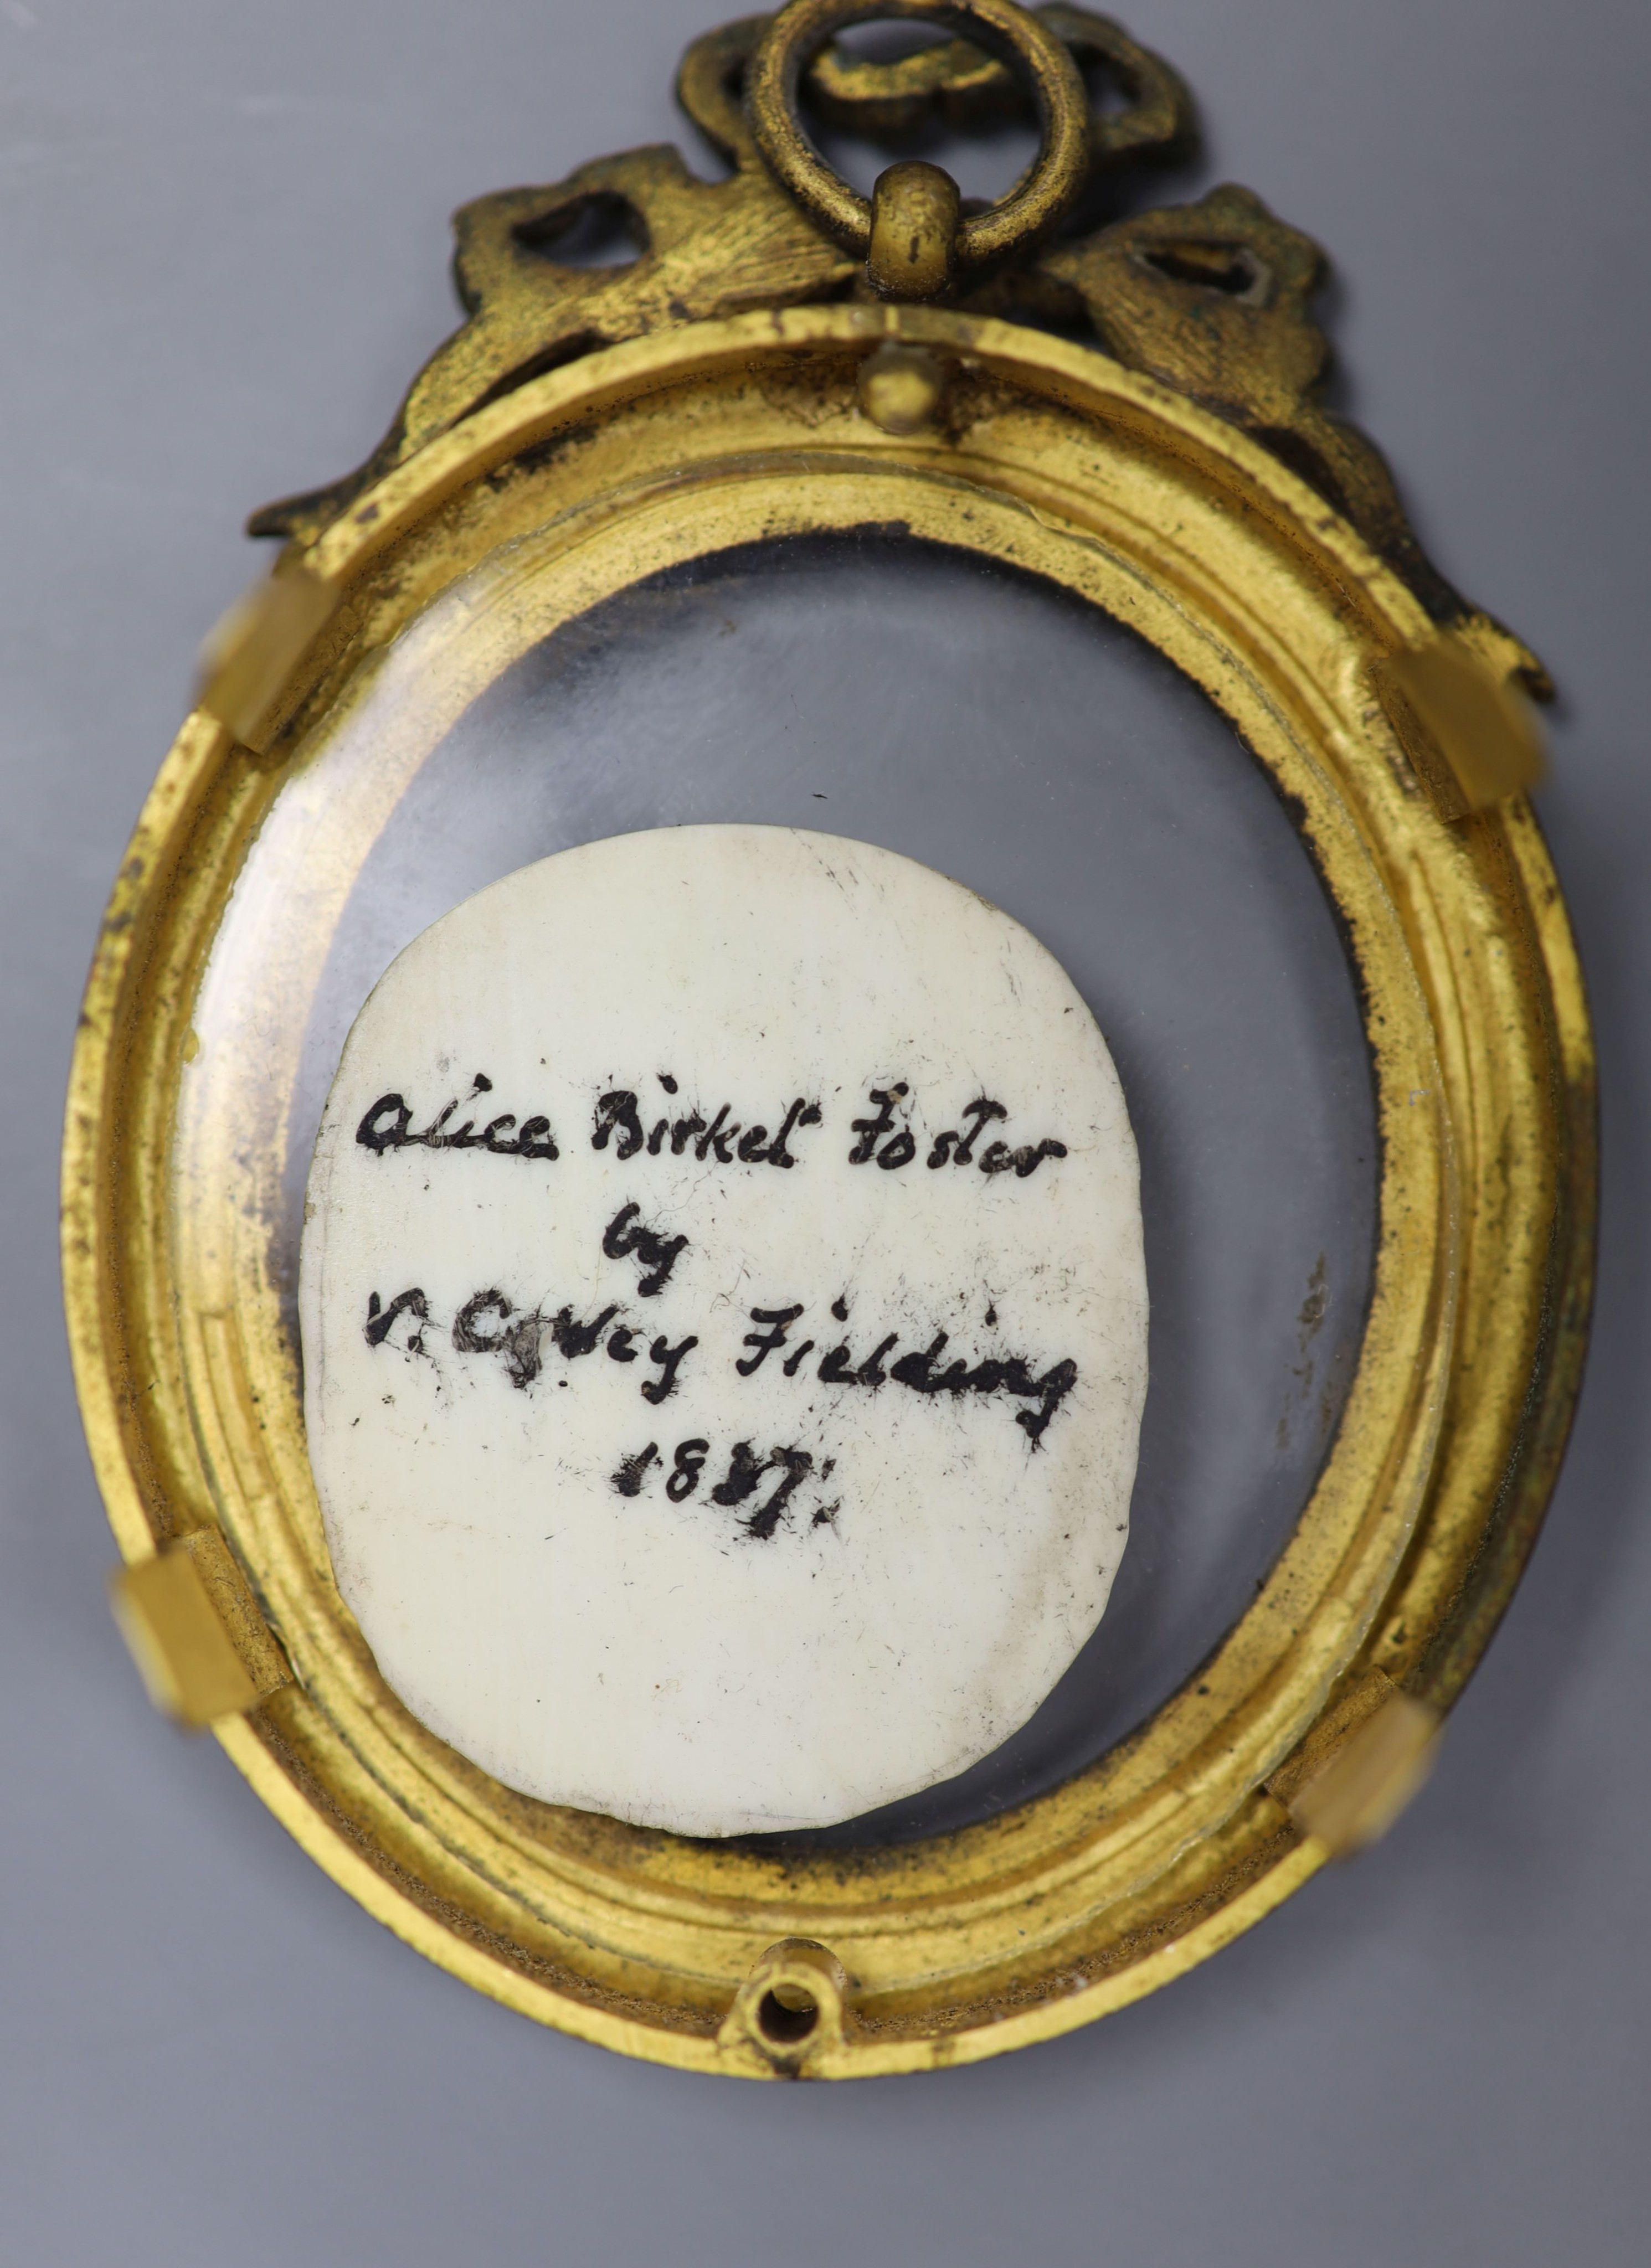 Alice Birket Foster
by
V. Copley Fielding
1837.